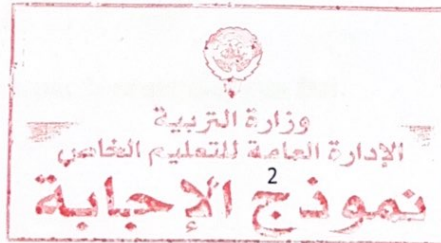 وزارة التربية
الإدارة العامة للتعليم الخاص
2
نموذج الإجابة